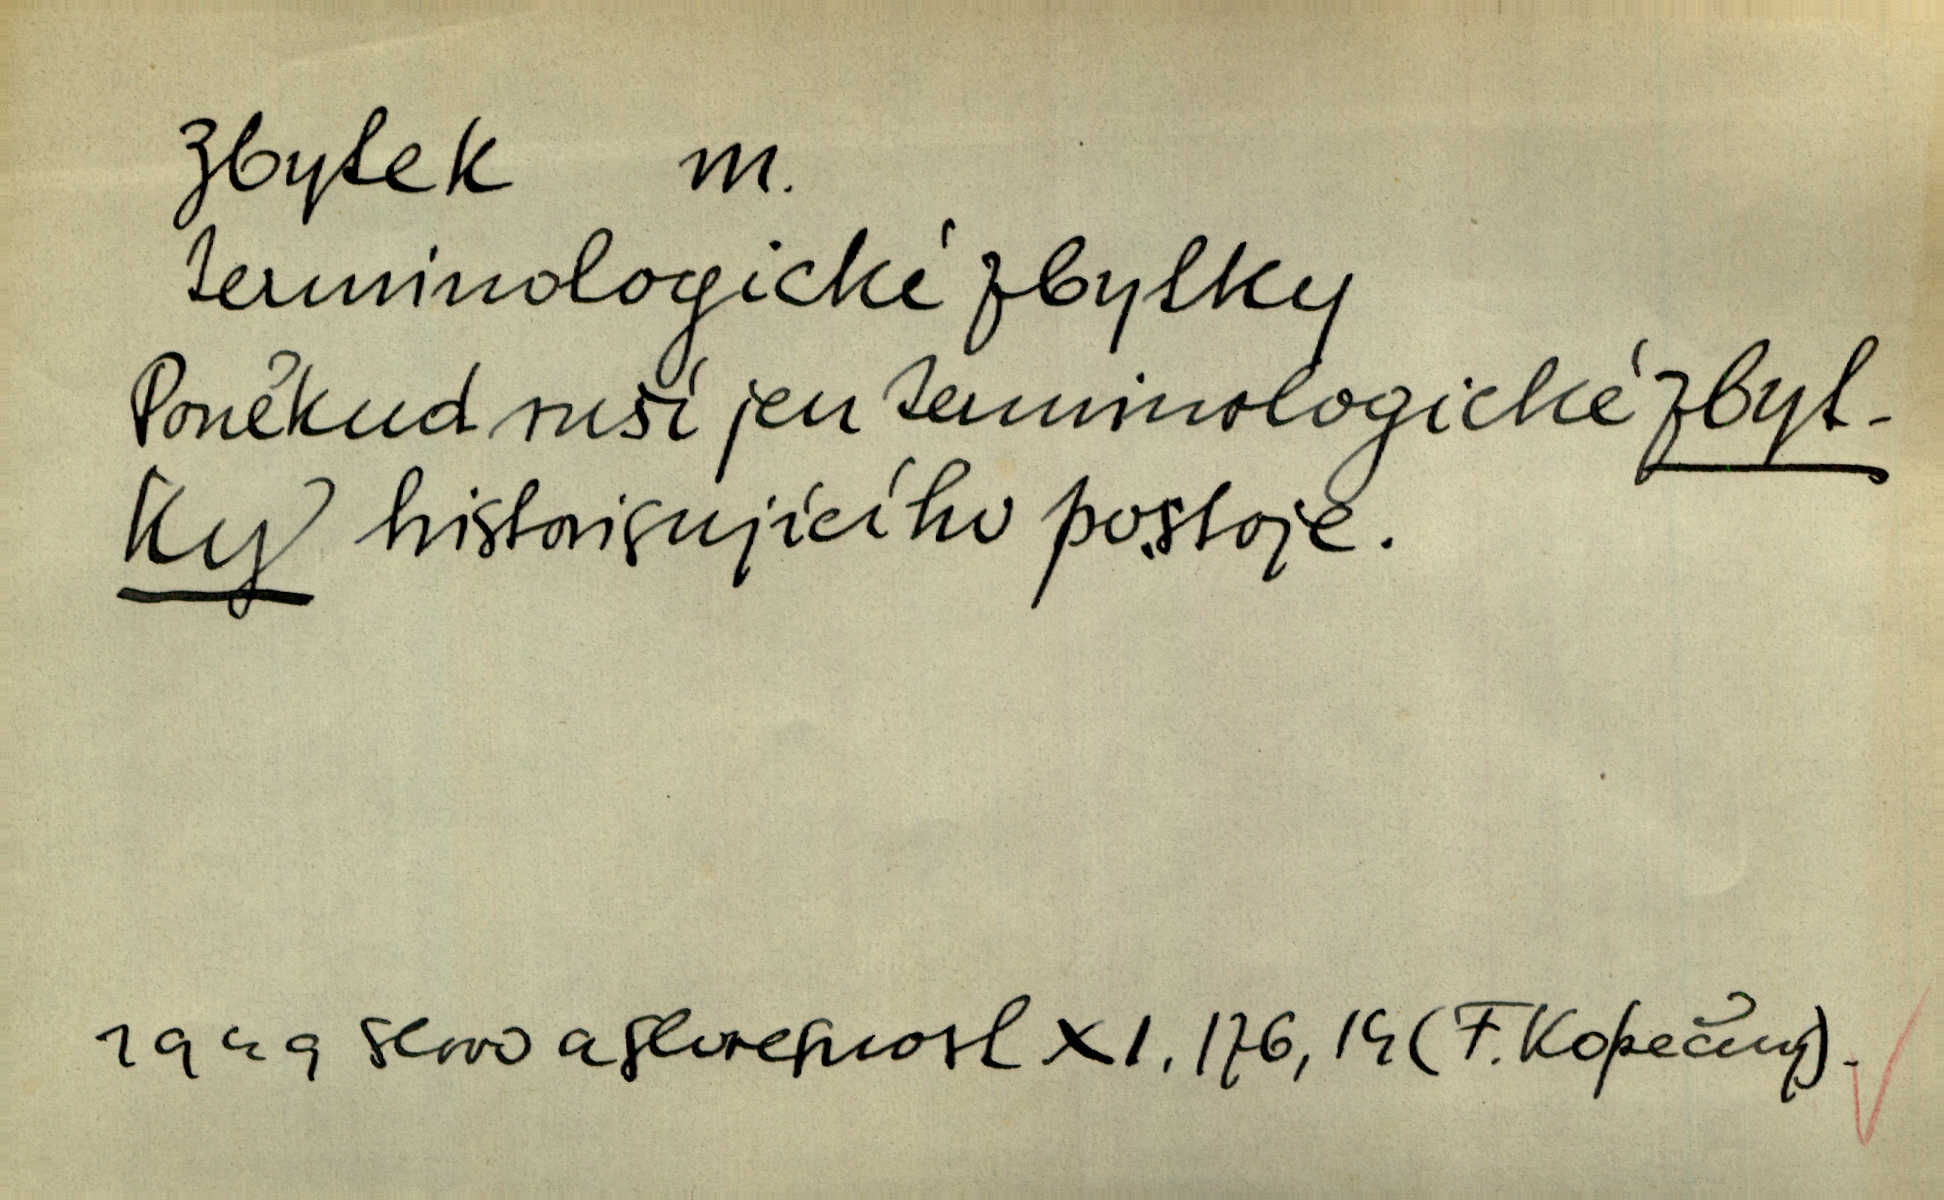 zbytek m.
terminologické zbytky
Poněkud ruší jen terminologické zbyt-
ky historisujícího postoje.
1949 Slovo a slovesnost XI. 176, 14 (F. Kopečný).